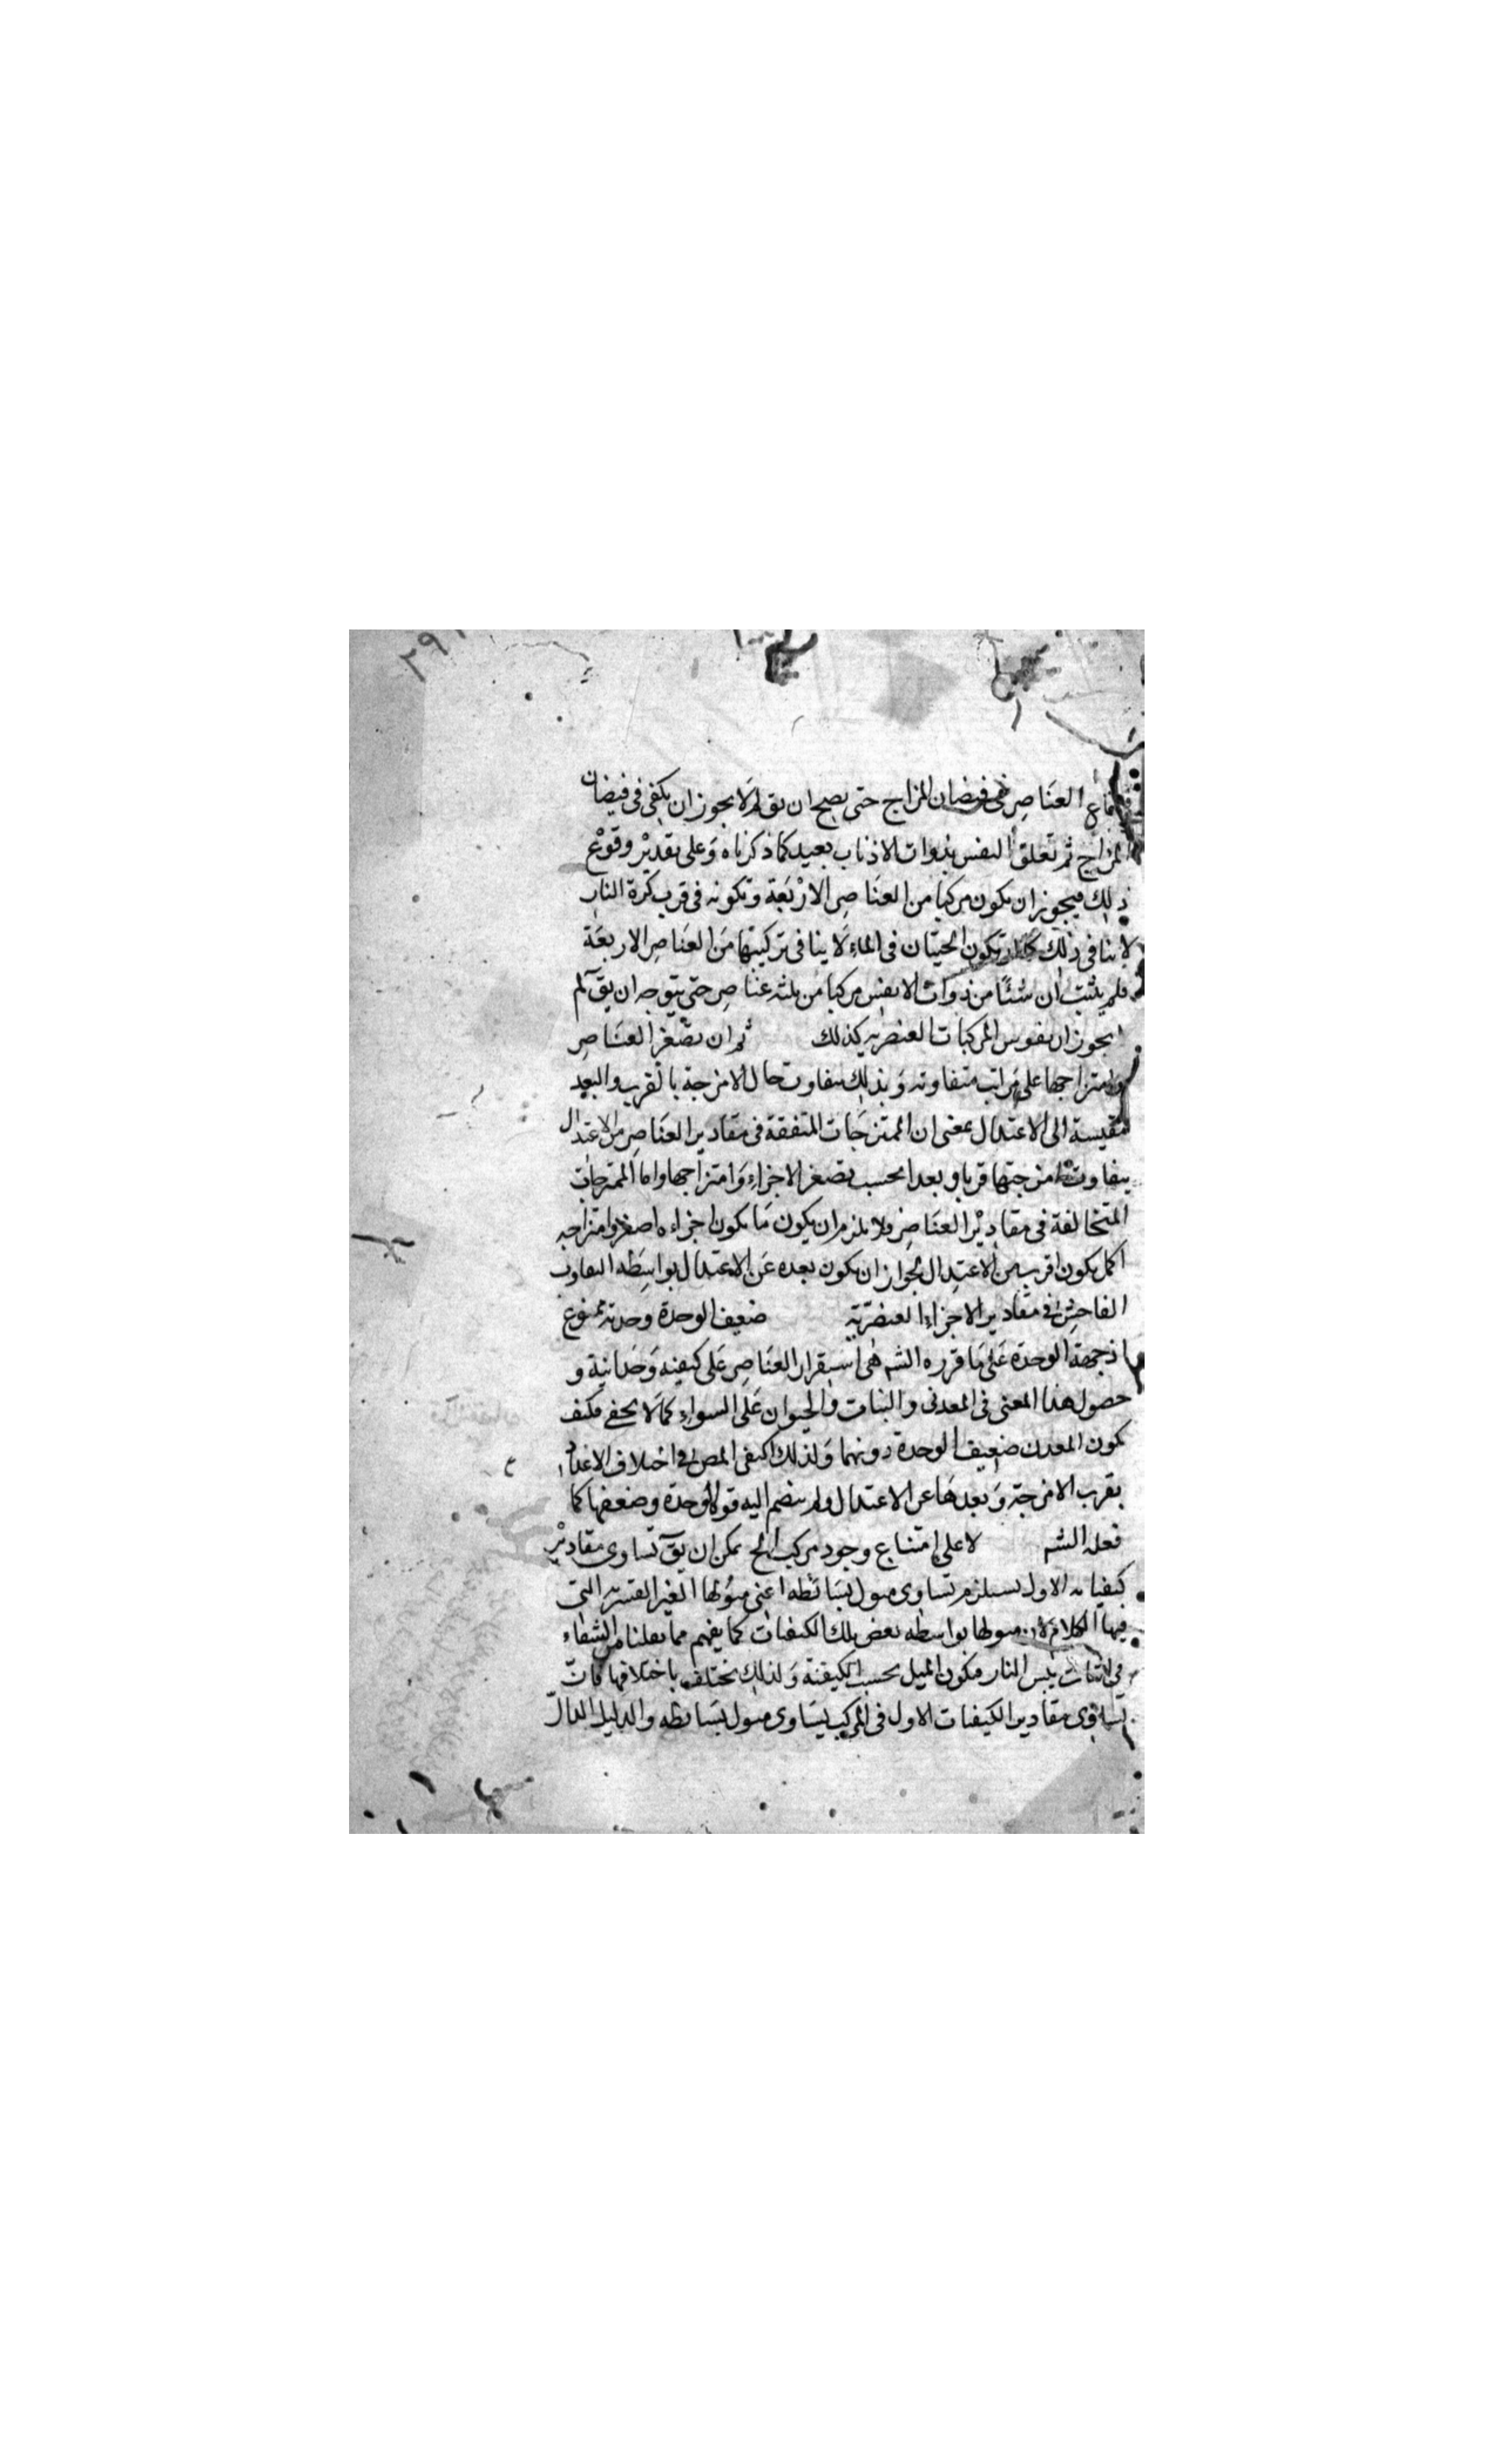 ٢٩
العناصر فى فيضان المزاج حتى يصح ان يق لم لا يجوز ان يكفى فى فيضان
المزاج ثم تعلق النفس بذوات الاذناب بعيد كما ذكرناه وعلى تقدير وقوع
ذلك فيجوز ان يكون مركبا من العناصر الاربعة وتكونه فى قرب كرة النار
لا ينافى ذلك كما ان تكون الحيتان فى الماء لا ينافى تركيبها من العناصر الاربعة
فلم يثبت ان شيئا من ذوات الانفس مركبا من ثلثه عناصر حتى يتوجه ان يق لم
لا يجوز ان نفوس المركبات العنصريه كذلك ثم ان تصغر العناصر
وامتزاجها على مراتب متفاوته وبذلك يتفاوت حال الامزجة بالقرب والبعد
مقيسة الى الاعتدال بمعنى ان الممتزجات المتفقة فى مقادير العناصر من الاعتدال
يتفاوت امزجتها قربا وبعدا بحسب تصغر الاجزاء وامتزاجها واما الممتزجات
المتخالفة فى مقادير العناصر فلا يلزم ان يكون ما يكون اجزاءه اصغر وامتزاجه
اكمل يكون اقرب من الاعتدال لجواز ان يكون بعده عن الاعتدال بواسطه التفاوت
الفاحش فى مقادير الاجزاء العنصريه ضعيف الوحدة وحدته ممنوع
اذ جهة الوحدة على ما قرره الشه هى استقرار العناصر على كيفيه وحدانية و
حصول هذا المعنى فى المعدنى والنبات والحيوان على السواء كما لا يخفى فكيف
يكون المعدن ضعيف الوحدة دونهما ولذلك اكتفى المص فى اختلاف الاعداد
بقرب الامزجة وبعدها عن الاعتدال ولم ينضم اليه قوة الوحدة وضعفها كما
فعله الشه لا على امتناع وجود مركب الخ يمكن ان يق تساوى مقادير
كيفياته الاول يستلزم تساوى ميول بسائطه اعنى ميولها الغير القسريه التى
فيها الكلام لان ميولها بواسطه بعض تلك الكيفيات كما يفهم مما نقلنا من الشفاء
فى اثبات يبس النار فيكون الميل بحسب الكيفية ولذلك يختلف باختلافها فان
تساوى مقادير الكيفيات الاول فى المركب يتساوى ميول بسائطه والدليل الدال